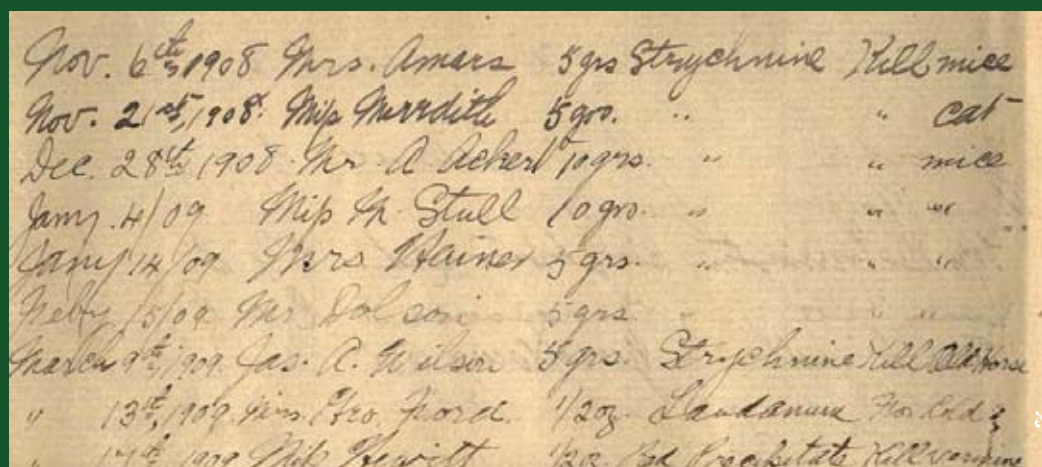 Nov. 6th, 1908 Mrs. Amars 5 grs Strychnine Kill mice
Nov. 21st, 1908. Miss Merrdith 5 grs. " " cat
Dec. 28th, 1908. Mr A Acherl 10 grs. " " mice
Jany. 4/09 Miss M. Stull 10 grs. " " "
Jany 14/09 Mrs Hainer 5 grs. " " "
Feby 15/09 Mr Dolson 5 grs. " " "
March 9th, 1909. Jas. A. Wilson 5 grs. Strychnine Kill Old Horse
" 13th, 1909. Mrs. Geo. Ford. 1/2 oz. Laudanum For Cold
" 17th, 1909 Miss Hewitt 1/2 oz Red Precipitate Kill vermine